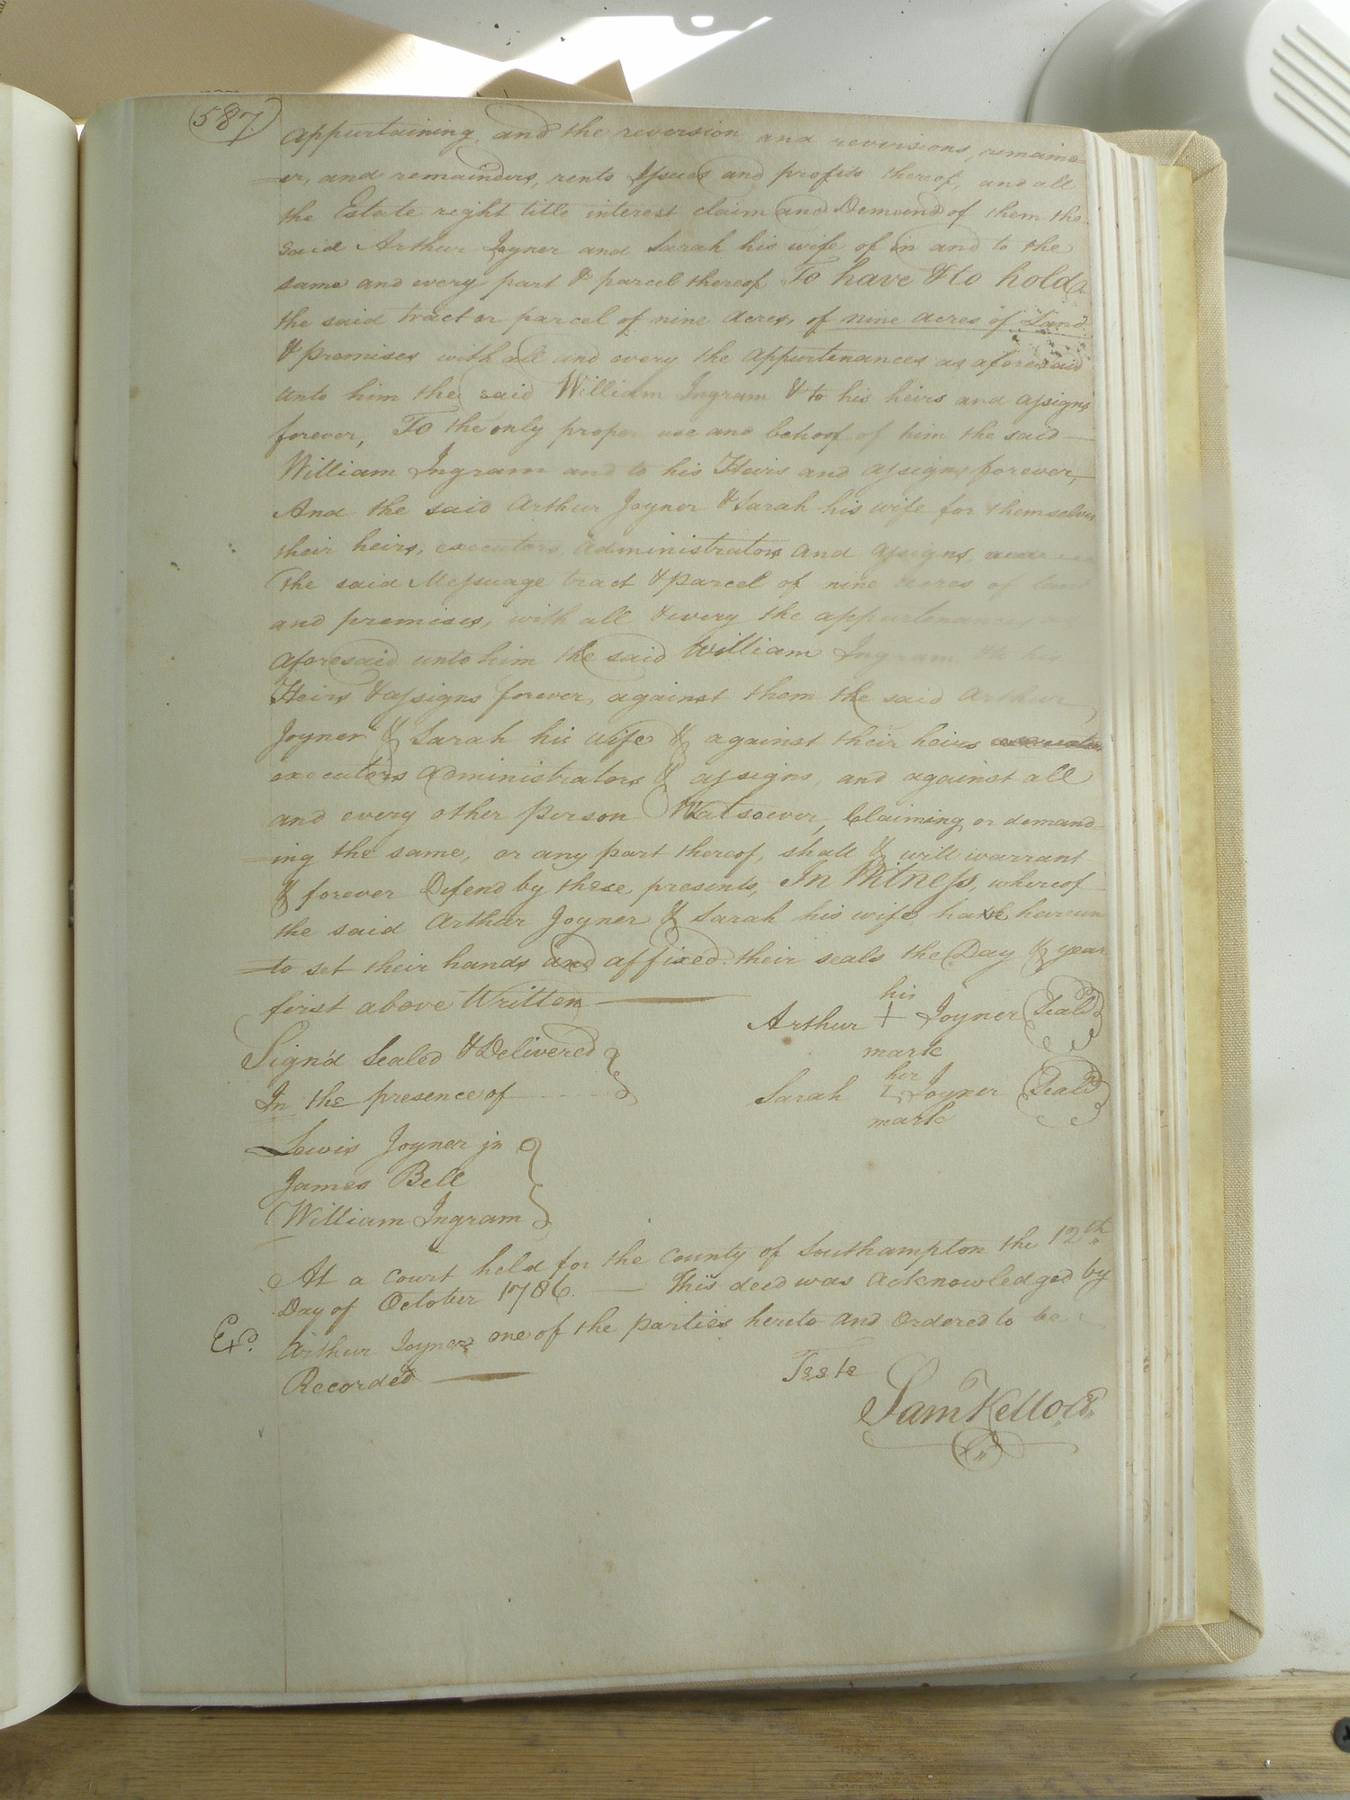 587
appurtaining and the reversion and reversions, remaind=
=er, and remainders, rents Issues and profits thereof, and all
the Estate right title interest claim and Demand of them the
said Arthur Joyner and Sarah his wife of in and to the
same and every part & parcel thereof To have & to hold
the said tract or parcel of nine Acres, of nine acres of Land
& premises with all and every the appurtenances as aforesaid
unto him the said William Ingram & to his heirs and assigns
forever, To the only proper use and behoof of him the said —
William Ingram and to his Heirs and assigns forever,
And the said Arthur Joyner & Sarah his wife for themselves
their heirs, executors Administrators and assigns,
The said Messuage tract & parcel of nine acres of land
and premises, with all & every the appurtenances as
aforesaid unto him the said William Ingram & to his
Heirs & assigns forever, against them the said Arthur
Joyner & Sarah his wife & against their heirs executors
executors Administrators & assigns, and against all
and every other person Whatsoever, Claiming or demand=
=ing the same, or any part thereof, shall & will warrant
& forever Defend by these presents, In Witness, whereof
the said Arthur Joyner & Sarah his wife have hereun
=to set their hands and affixed their seals the Day & year
first above Written —
Arthur his + mark Joyner (Seal)
Sign'd Sealed & Delivered
In the presence of
Sarah her mark Joyner (Seal)
Lewis Joyner jr
James Bell
William Ingram
At a Court held for the County of Southampton the 12th
Day of October 1786. — This deed was Acknowledged by
Exd. Arthur Joyner one of the parties hereto and Ordered to be
Recorded —
Teste
Sam Kello Cl